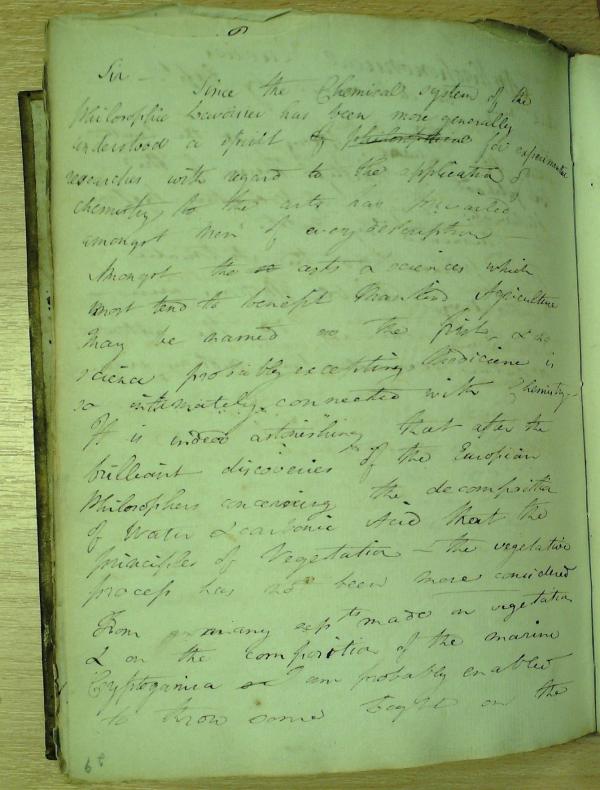 6
Sir Since the Chemical system of the
Philosophic Lavoisier has been more generally
understood a spirit of philosophical for experimental
researches with regard to the application of
chemistry to the arts has prevailed
amongst men of every description —
Amongst the arts & sciences which
most tend to benefit Mankind Agriculture
may be named as the first, & no
science probably excepting Medicine is
so intimately connected with chemistry.-
It is indeed astonishing that after the
brilliant discoveries of the European
Philosophers concerning the decomposition
of Water & carbonic Acid that the
principles of Vegetation — the vegetative
process has not been more considered
From many expts made on vegetation
& on the Composition of the marine
Cryptogamia I am probably enabled
to throw some light on the